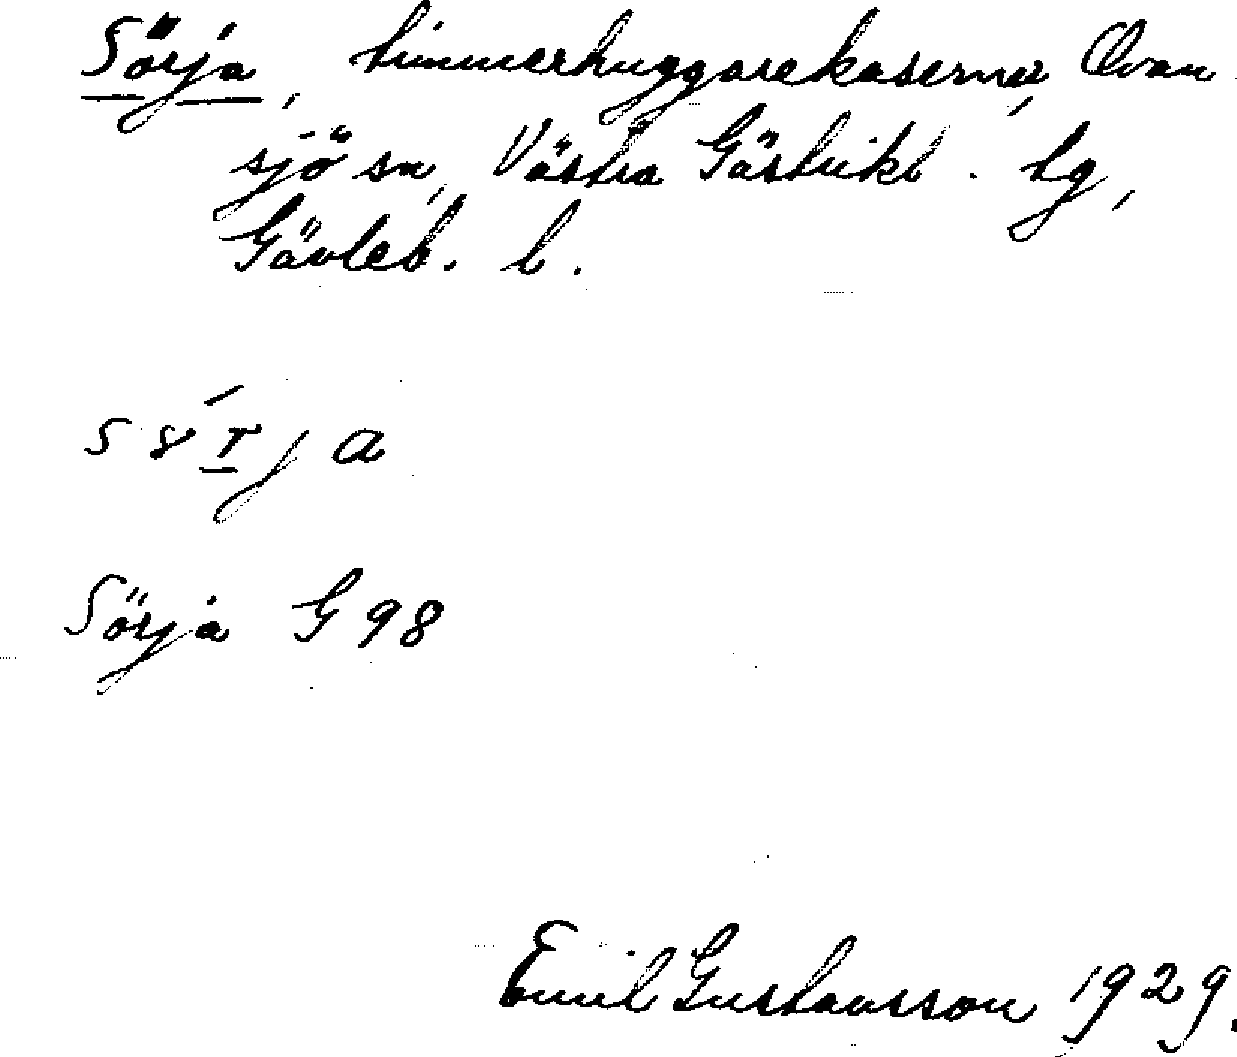 Sörja, timmerhuggarekaserner, Ovan-
sjö sn, Västra Gästrikl. tg,
Gävleb. l.
Sörja G 98
Emil Gustavsson 1929.